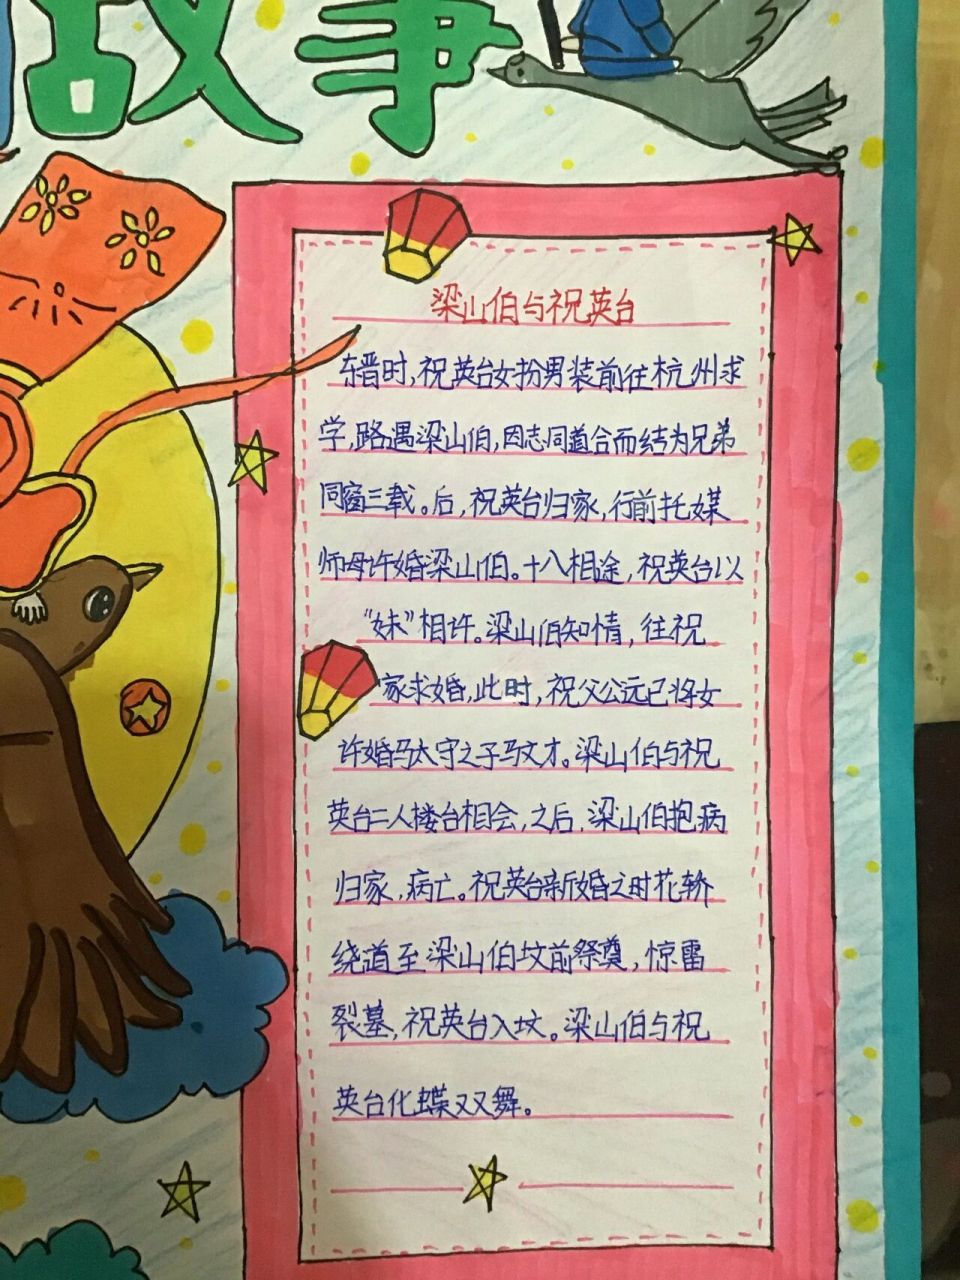 故事
梁山伯与祝英台
东晋时,祝英台女扮男装前往杭州求
学,路遇梁山伯,因志同道合而结为兄弟
同窗三载。后,祝英台归家,行前托媒
师母许婚梁山伯。十八相途,祝英台以
“妹”相许。梁山伯知情,往祝
家求婚,此时,祝父公远已将女
许婚马太守之子马文才。梁山伯与祝
英台二人楼台相会,之后,梁山伯抱病
归家,病亡。祝英台新婚之时花轿
绕道至梁山伯坟前祭奠,惊雷
裂墓,祝英台入坟。梁山伯与祝
英台化蝶双双舞。